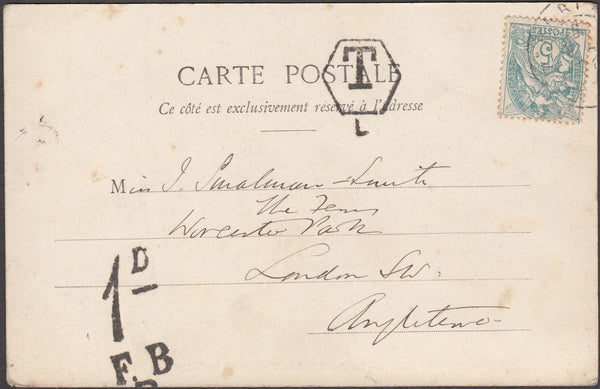 CARTE POSTALE
T
L
Ce côté est exclusivement réservé à l'adresse
POSTES
5
Miss J. Smalman-Smith
The
Worcester Park
London SW.
Angleterre
1D
F.B